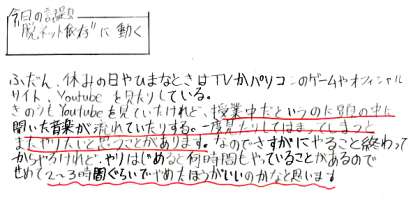 今日の話題
脱ネット依存"に動く
ふだん、休みの日やひまなときはTVかパソコンのゲームやオフィシャル
サイト、Youtubeを見たりしている。
きのうもYoutubeを見ていたけれど、授業中だというのに頭の中に
聞いた音楽が流れていたりする。一度見たりしてはまってしまうと
またやりたいと思うことがあります。なのでさすがにやること終わって
からやるけれど、やりはじめると何時間もやっていることがあるので
せめて2〜3時間ぐらいでやめたほうがいいのかなと思います